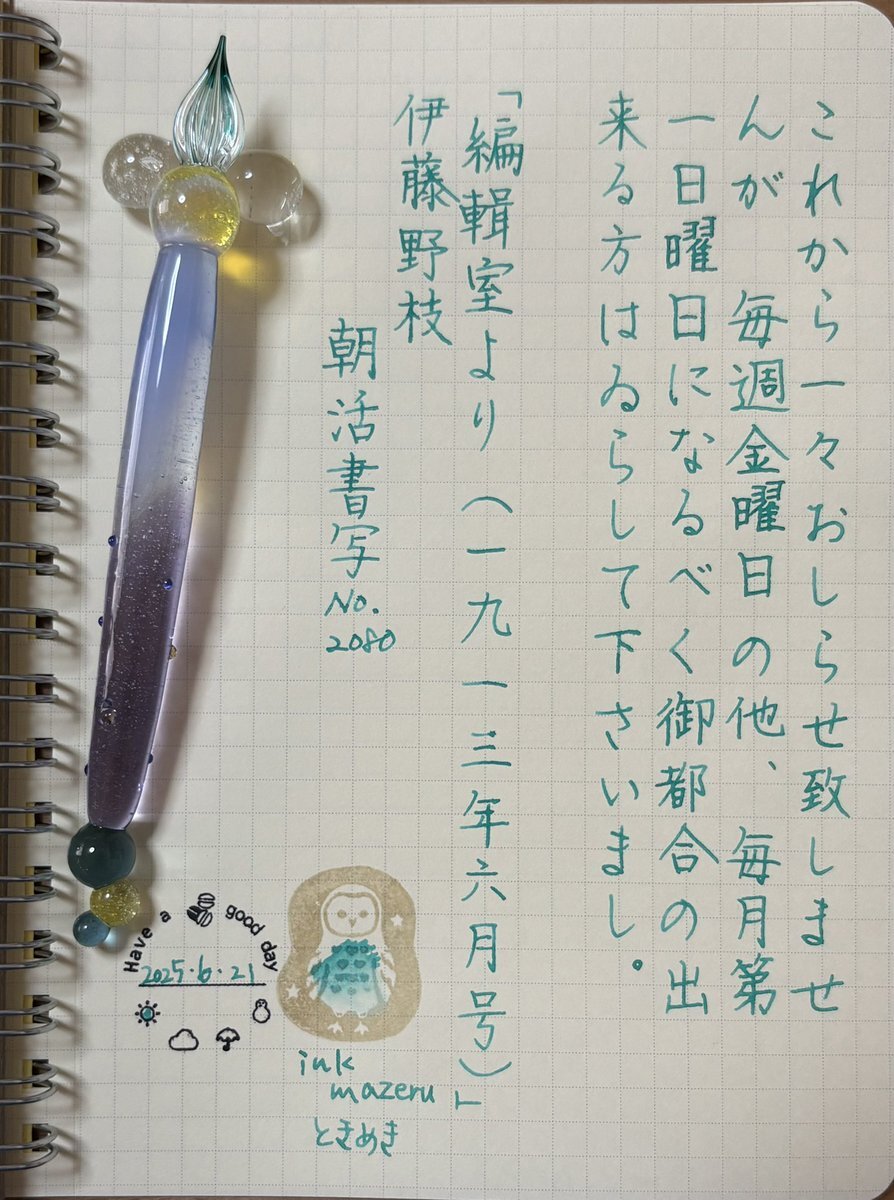 これから一々おしらせ致しませ
んが 毎週金曜日の他、毎月第
一日曜日になるべく御都合の出
来る方はゐらして下さいまし。
「編輯室より（一九一三年六月号）」
伊藤野枝
朝活書写
No.
2080
Have a good day
2025.6.21
ink
mazeru
ときめき